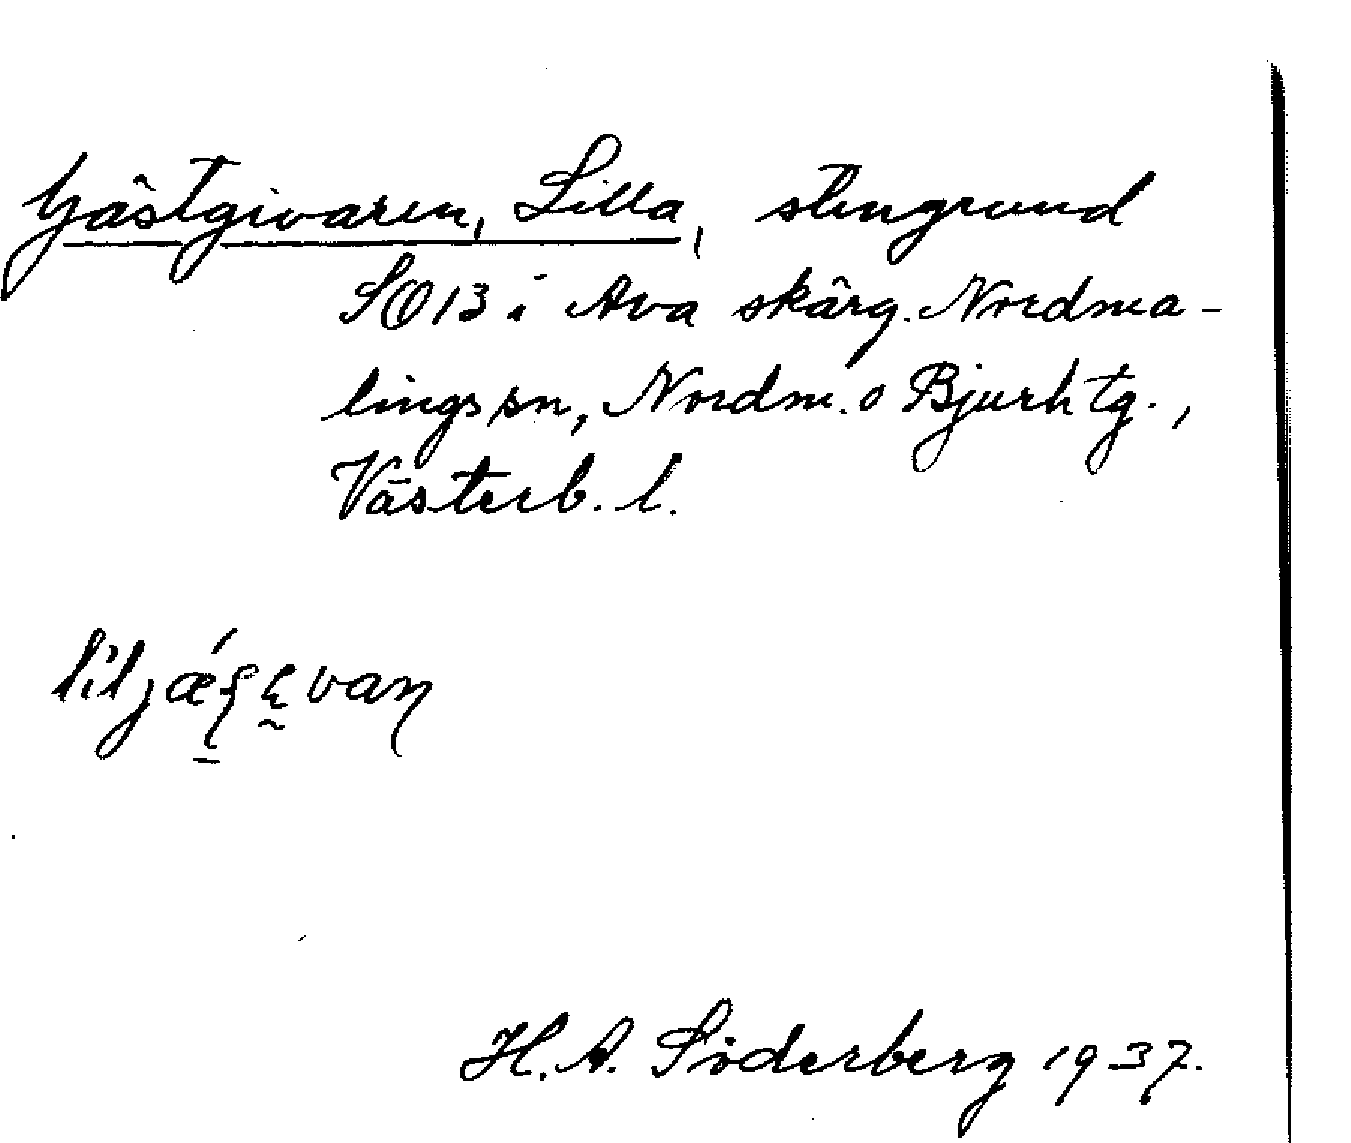 Gästgivaren, Lilla, stengrund
SO13 i Ava skärg. Nordma-
lings sn, Nordm. o Bjurh tg.,
Västerb. l.
H. A. Söderberg 1937.